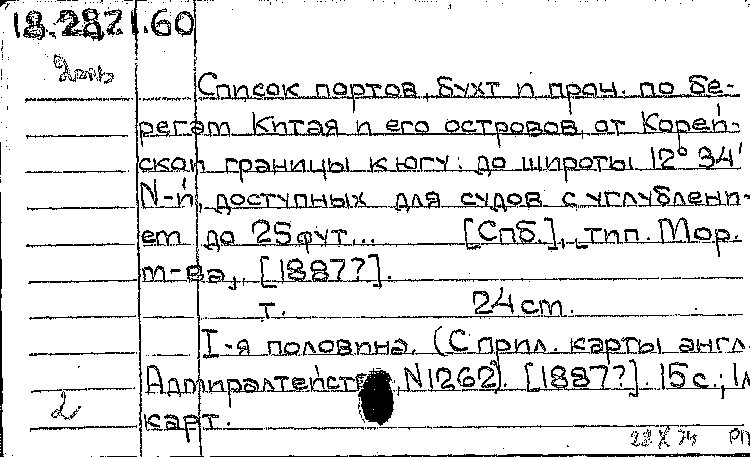 18.2871.60
Список портов, бухт и проч. по бе-
регам Китая и его островов, от Корей-
ской границы к югу: до широты 12° 34'
N-й, доступных для судов с углублени-
ем до 25 фут... [Спб.], тип. Мор.
м-ва, [1887?].
т. 24 cm.
I-я половина. (С прил. карты англ.
Адмиралтейства, N 1262). [1887?]. 15 с.; 1 л.
2
карт.